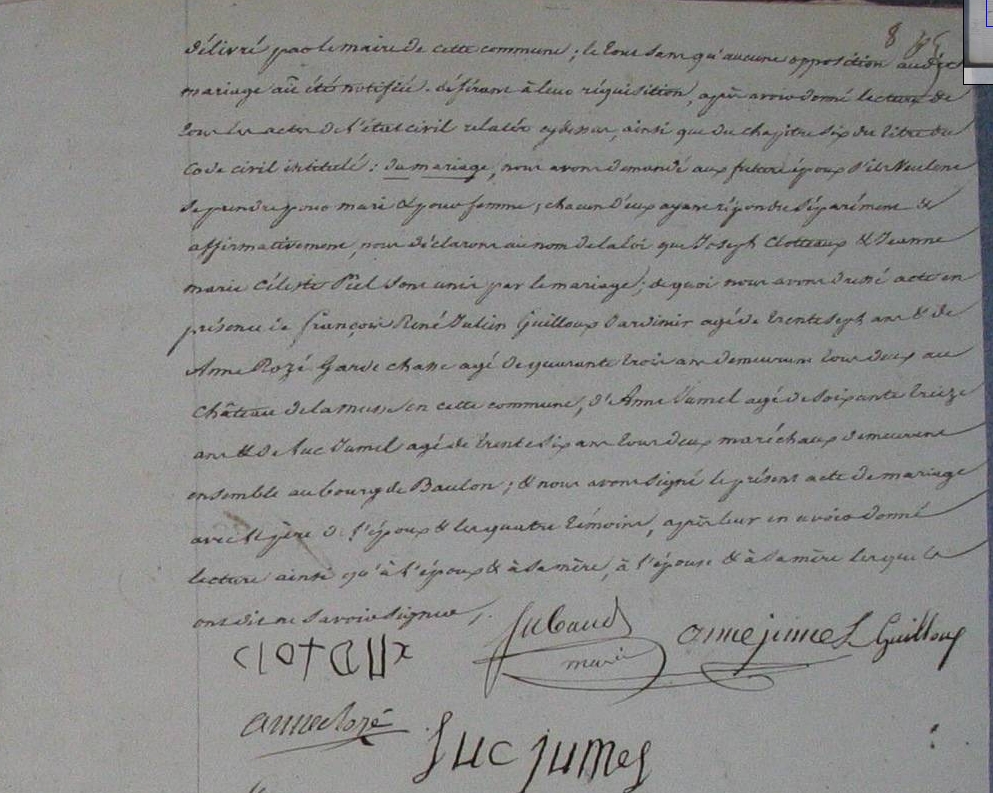 8
délivré par le maire de cette commune ; le tout sans qu'aucune opposition audit
mariage ait été notifiée. déférant à leur réquisition, après avoir donné lecture de
tous les actes de l'état civil relatés cy dessus, ainsi que du chapitre six du titre du
Code civil intitulé : du mariage, nous avons demandé aux futurs époux s'ils veulent
se prendre pour mari & pour femme ; chacun d'eux ayant répondu séparément &
affirmativement, nous déclarons au nom de la loi que Joseph Clotteaux & Jeanne
marie Céleste Piel sont unis par le mariage ; de quoi nous avons dressé acte en
présence de françois René Julien Guilloux Jardinier agé de trente sept ans & de
Anne Rozé Garde chasse agé de quarante trois ans demeurant tous deux au
château de la musse en cette commune, d'Anne Jumel agé de soixante treize
ans & de Luc Jumel agé de trente six ans tous deux maréchaux demeurant
ensemble au bourg de Baulon ; & nous avons signé le présent acte de mariage
avec le père de l'époux & les quatre témoins, après leur en avoir donné
lecture ainsi qu'à l'époux & à sa mère, à l'épouse & à sa mère lesquels
ont dit ne savoir signer /.
maire
anne jumel Guilloux
anne Rozé
Luc jumel